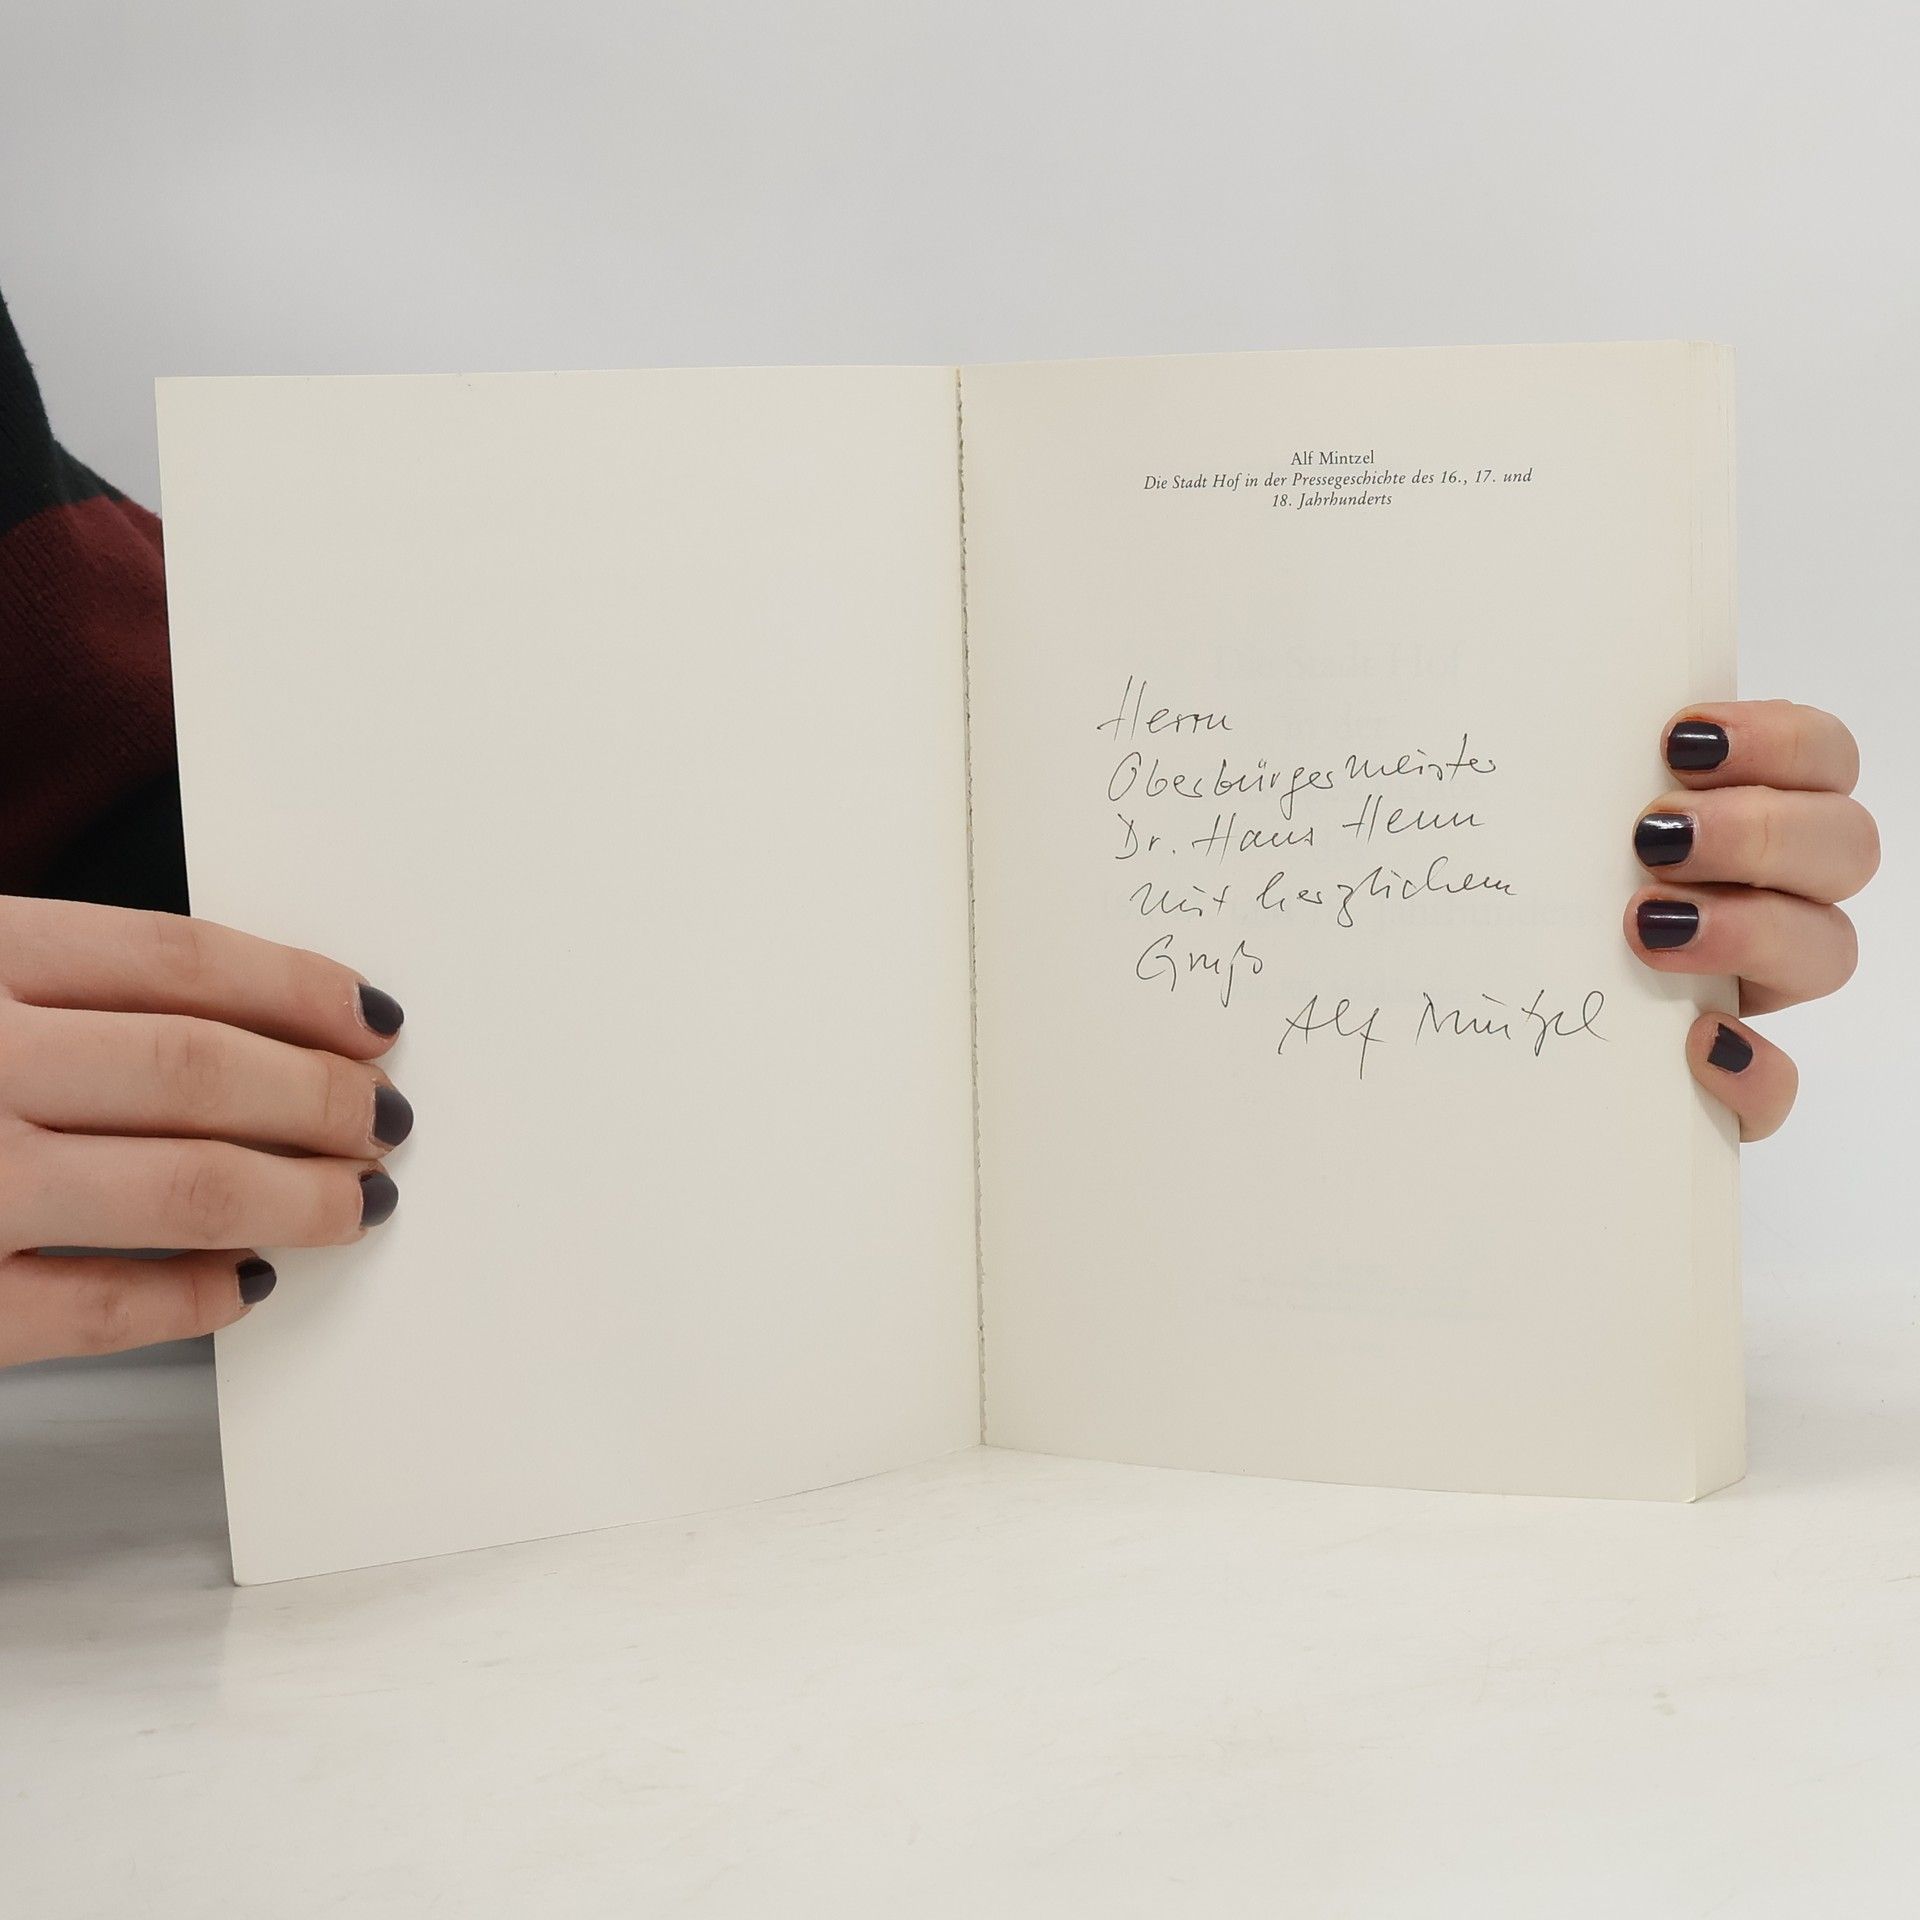 Alf Mintzel
Die Stadt Hof in der Pressegeschichte des 16., 17. und
18. Jahrhunderts
Herrn
Oberbürgermeister
Dr. Hans Heun
mit herzlichem
Gruß
Alf Mintzel